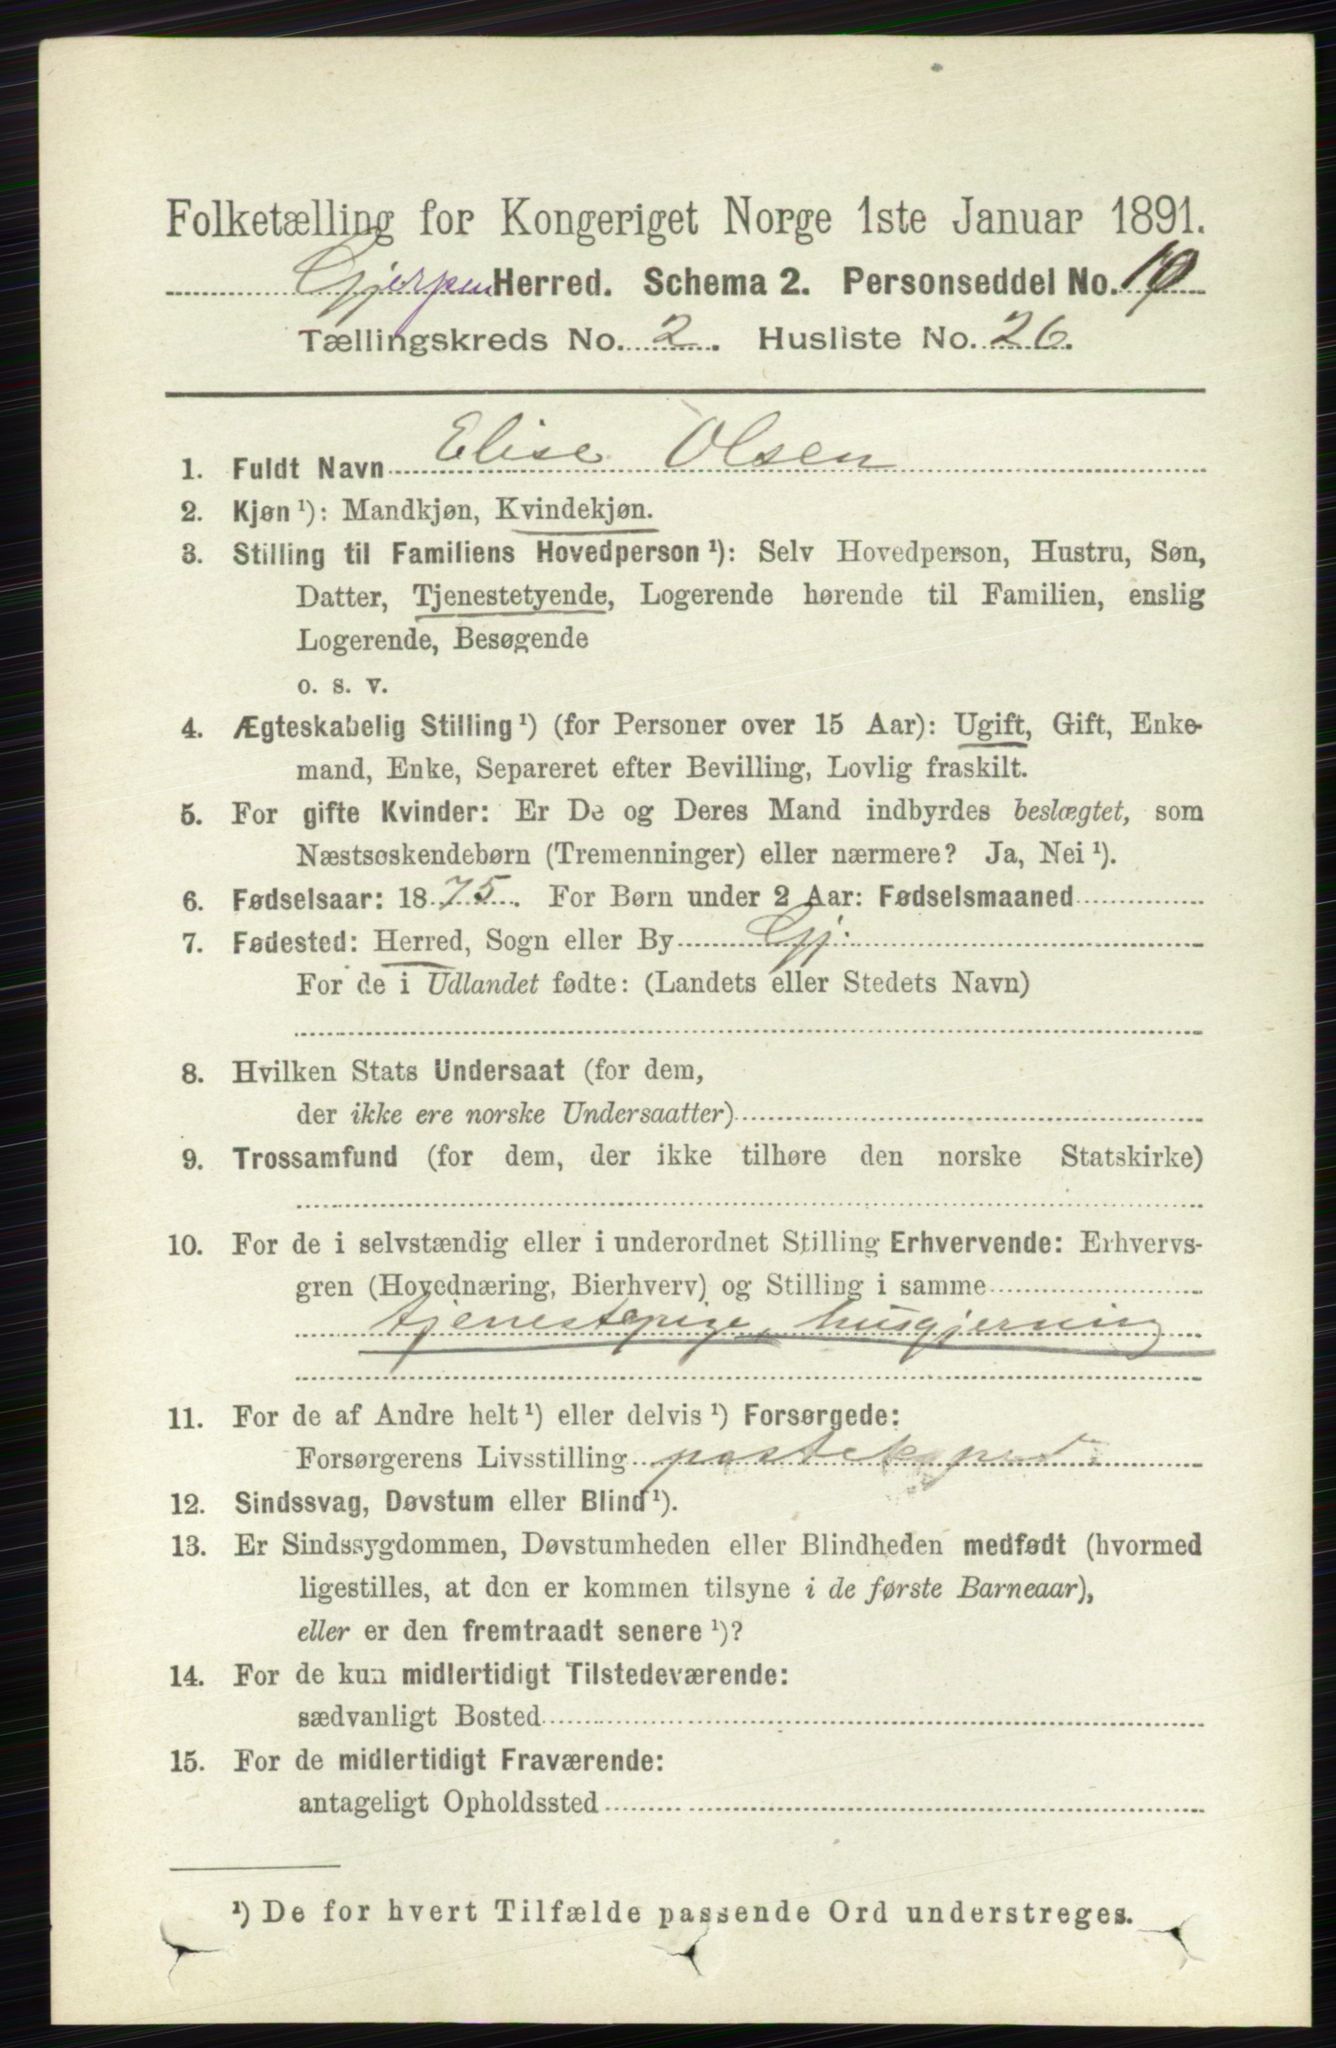 Folketælling for Kongeriget Norge 1ste Januar 1891.
Gjerpen Herred. Schema 2. Personseddel No. 10
Tællingskreds No. 2. Husliste No. 26.
1. Fuldt Navn Elise Olsen
2. Kjøn ¹): Mandkjøn, Kvindekjøn.
3. Stilling til Familiens Hovedperson ¹): Selv Hovedperson, Hustru, Søn,
Datter, Tjenestetyende, Logerende hørende til Familien, enslig
Logerende, Besøgende
o. s. v.
4. Ægteskabelig Stilling ¹) (for Personer over 15 Aar): Ugift, Gift, Enke-
mand, Enke, Separeret efter Bevilling, Lovlig fraskilt.
5. For gifte Kvinder: Er De og Deres Mand indbyrdes beslægtet, som
Næstsøskendebørn (Tremenninger) eller nærmere? Ja, Nei ¹).
6. Fødselsaar: 1875. For Børn under 2 Aar: Fødselsmaaned
7. Fødested: Herred, Sogn eller By Gj.
For de i Udlandet fødte: (Landets eller Stedets Navn)
8. Hvilken Stats Undersaat (for dem,
der ikke ere norske Undersaatter)
9. Trossamfund (for dem, der ikke tilhøre den norske Statskirke)
10. For de i selvstændig eller i underordnet Stilling Erhvervende: Erhvervs-
gren (Hovednæring, Bierhverv) og Stilling i samme
tjenestepige, husgjerning
11. For de af Andre helt ¹) eller delvis ¹) Forsørgede:
Forsørgerens Livsstilling
12. Sindssvag, Døvstum eller Blind ¹).
13. Er Sindssygdommen, Døvstumheden eller Blindheden medfødt (hvormed
ligestilles, at den er kommen tilsyne i de første Barneaar),
eller er den fremtraadt senere ¹)?
14. For de kun midlertidigt Tilstedeværende:
sædvanligt Bosted
15. For de midlertidigt Fraværende:
antageligt Opholdssted
¹) De for hvert Tilfælde passende Ord understreges.